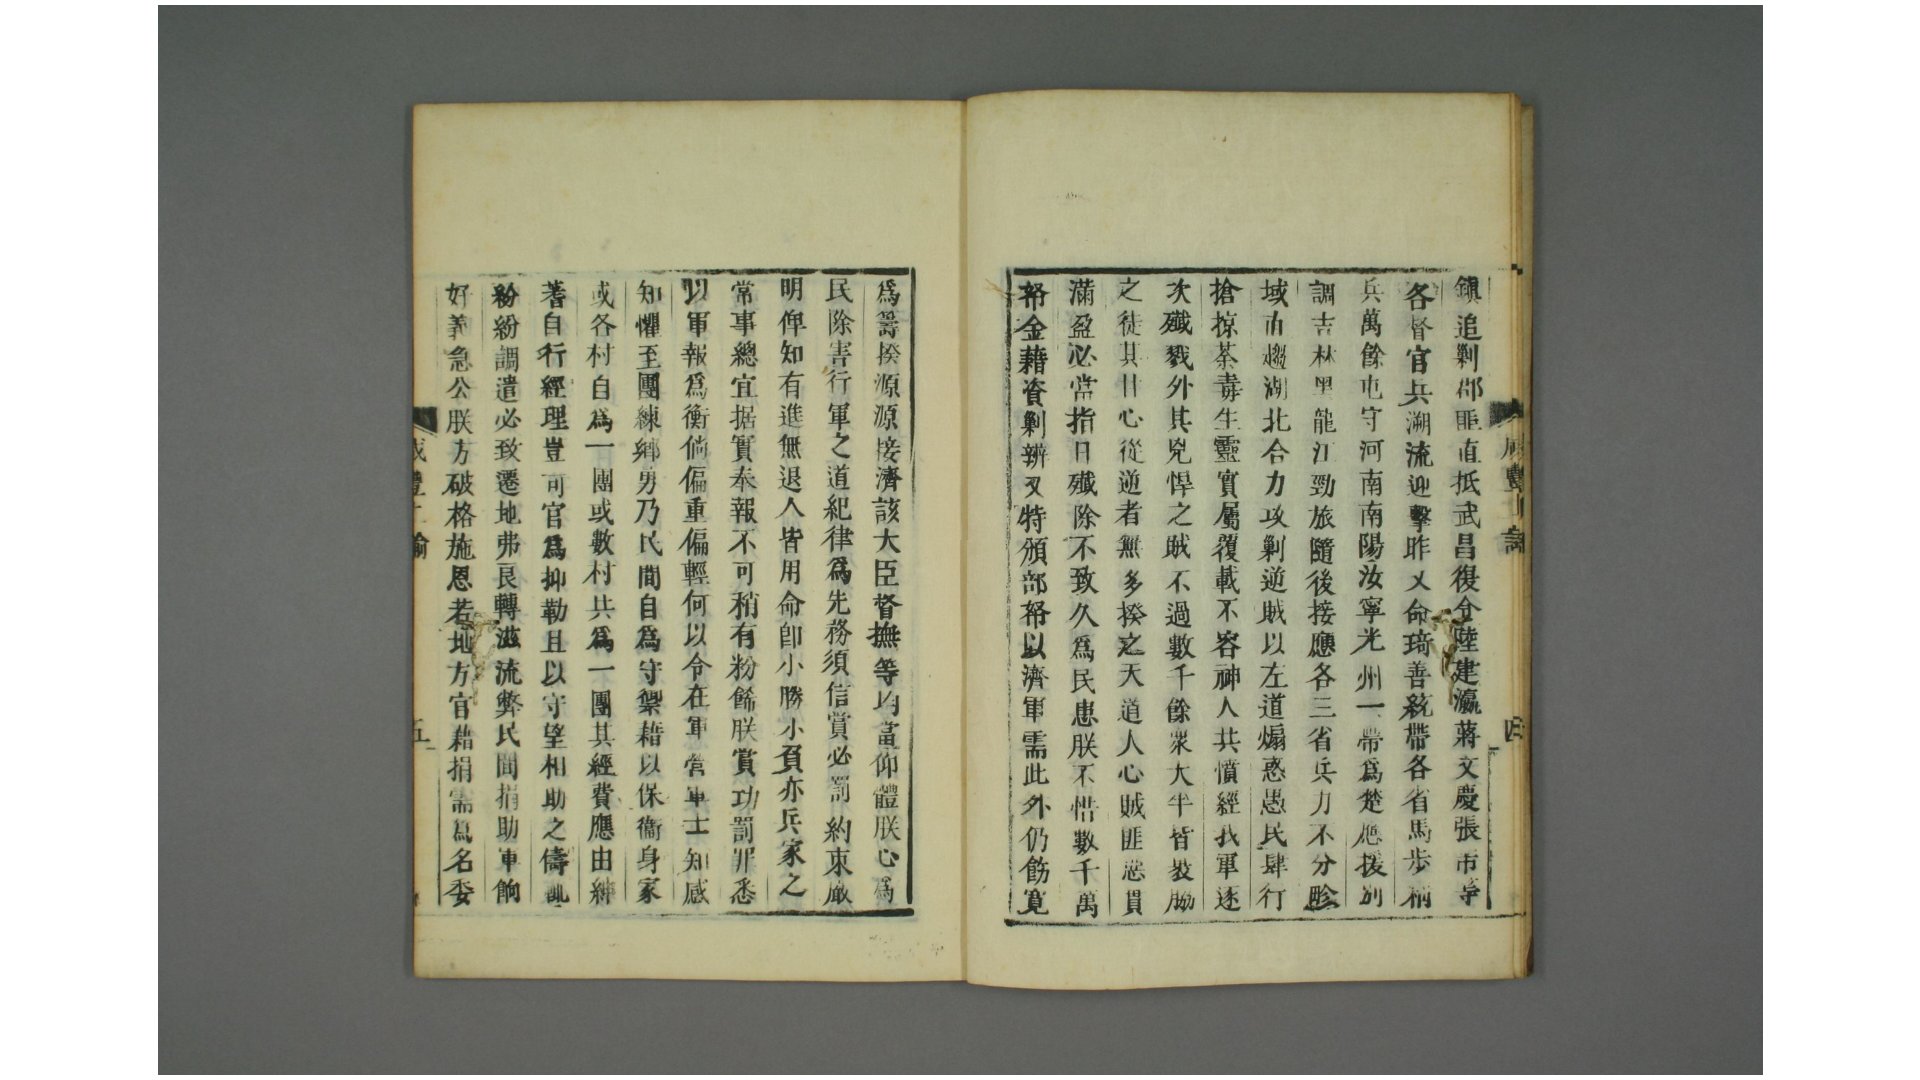 鎮追剿鄖匪直抵武昌復令陸建瀛蔣文慶張芾等
各督官兵溯流迎擊昨又命琦善統帶各省馬步精
兵萬餘屯守河南南陽汝寧光州一帶爲楚應援別
調吉林黑龍江勁旅隨後接應各三省兵力不分畛
域而趨湖北合力攻剿逆賊以左道煽惑愚民肆行
搶掠荼毒生靈實屬覆載不容神人共憤經我軍逐
次殲戮外其兇悍之賊不過數千餘衆大半皆裹脇
之徒其甘心從逆者無多揆之天道人心賊匪惡貫
滿盈必當指日殲除不致久爲民患朕不惜數千萬
帑金藉資剿辦又特頒部帑以濟軍需此外仍飭寬
爲籌撥源源接濟該大臣督撫等均當仰體朕心爲
民除害行軍之道紀律爲先務須信賞必罰約束嚴
明俾知有進無退人皆用命卽小勝小負亦兵家之
常事總宜据實奉報不可稍有粉餙朕賞功罰罪悉
以軍報爲衡倘偏重偏輕何以令在軍營軍士知感
知懼至團練鄉勇乃民間自爲守禦藉以保衞身家
或各村自爲一團或數村共爲一團其經費應由紳
著自行經理豈可官爲抑勒且以守望相助之儔亂
紛紛調遣必致遷地弗良轉滋流弊民間捐助軍餉
好義急公朕方破格施恩若地方官藉捐需爲名委
咸豐上諭
五